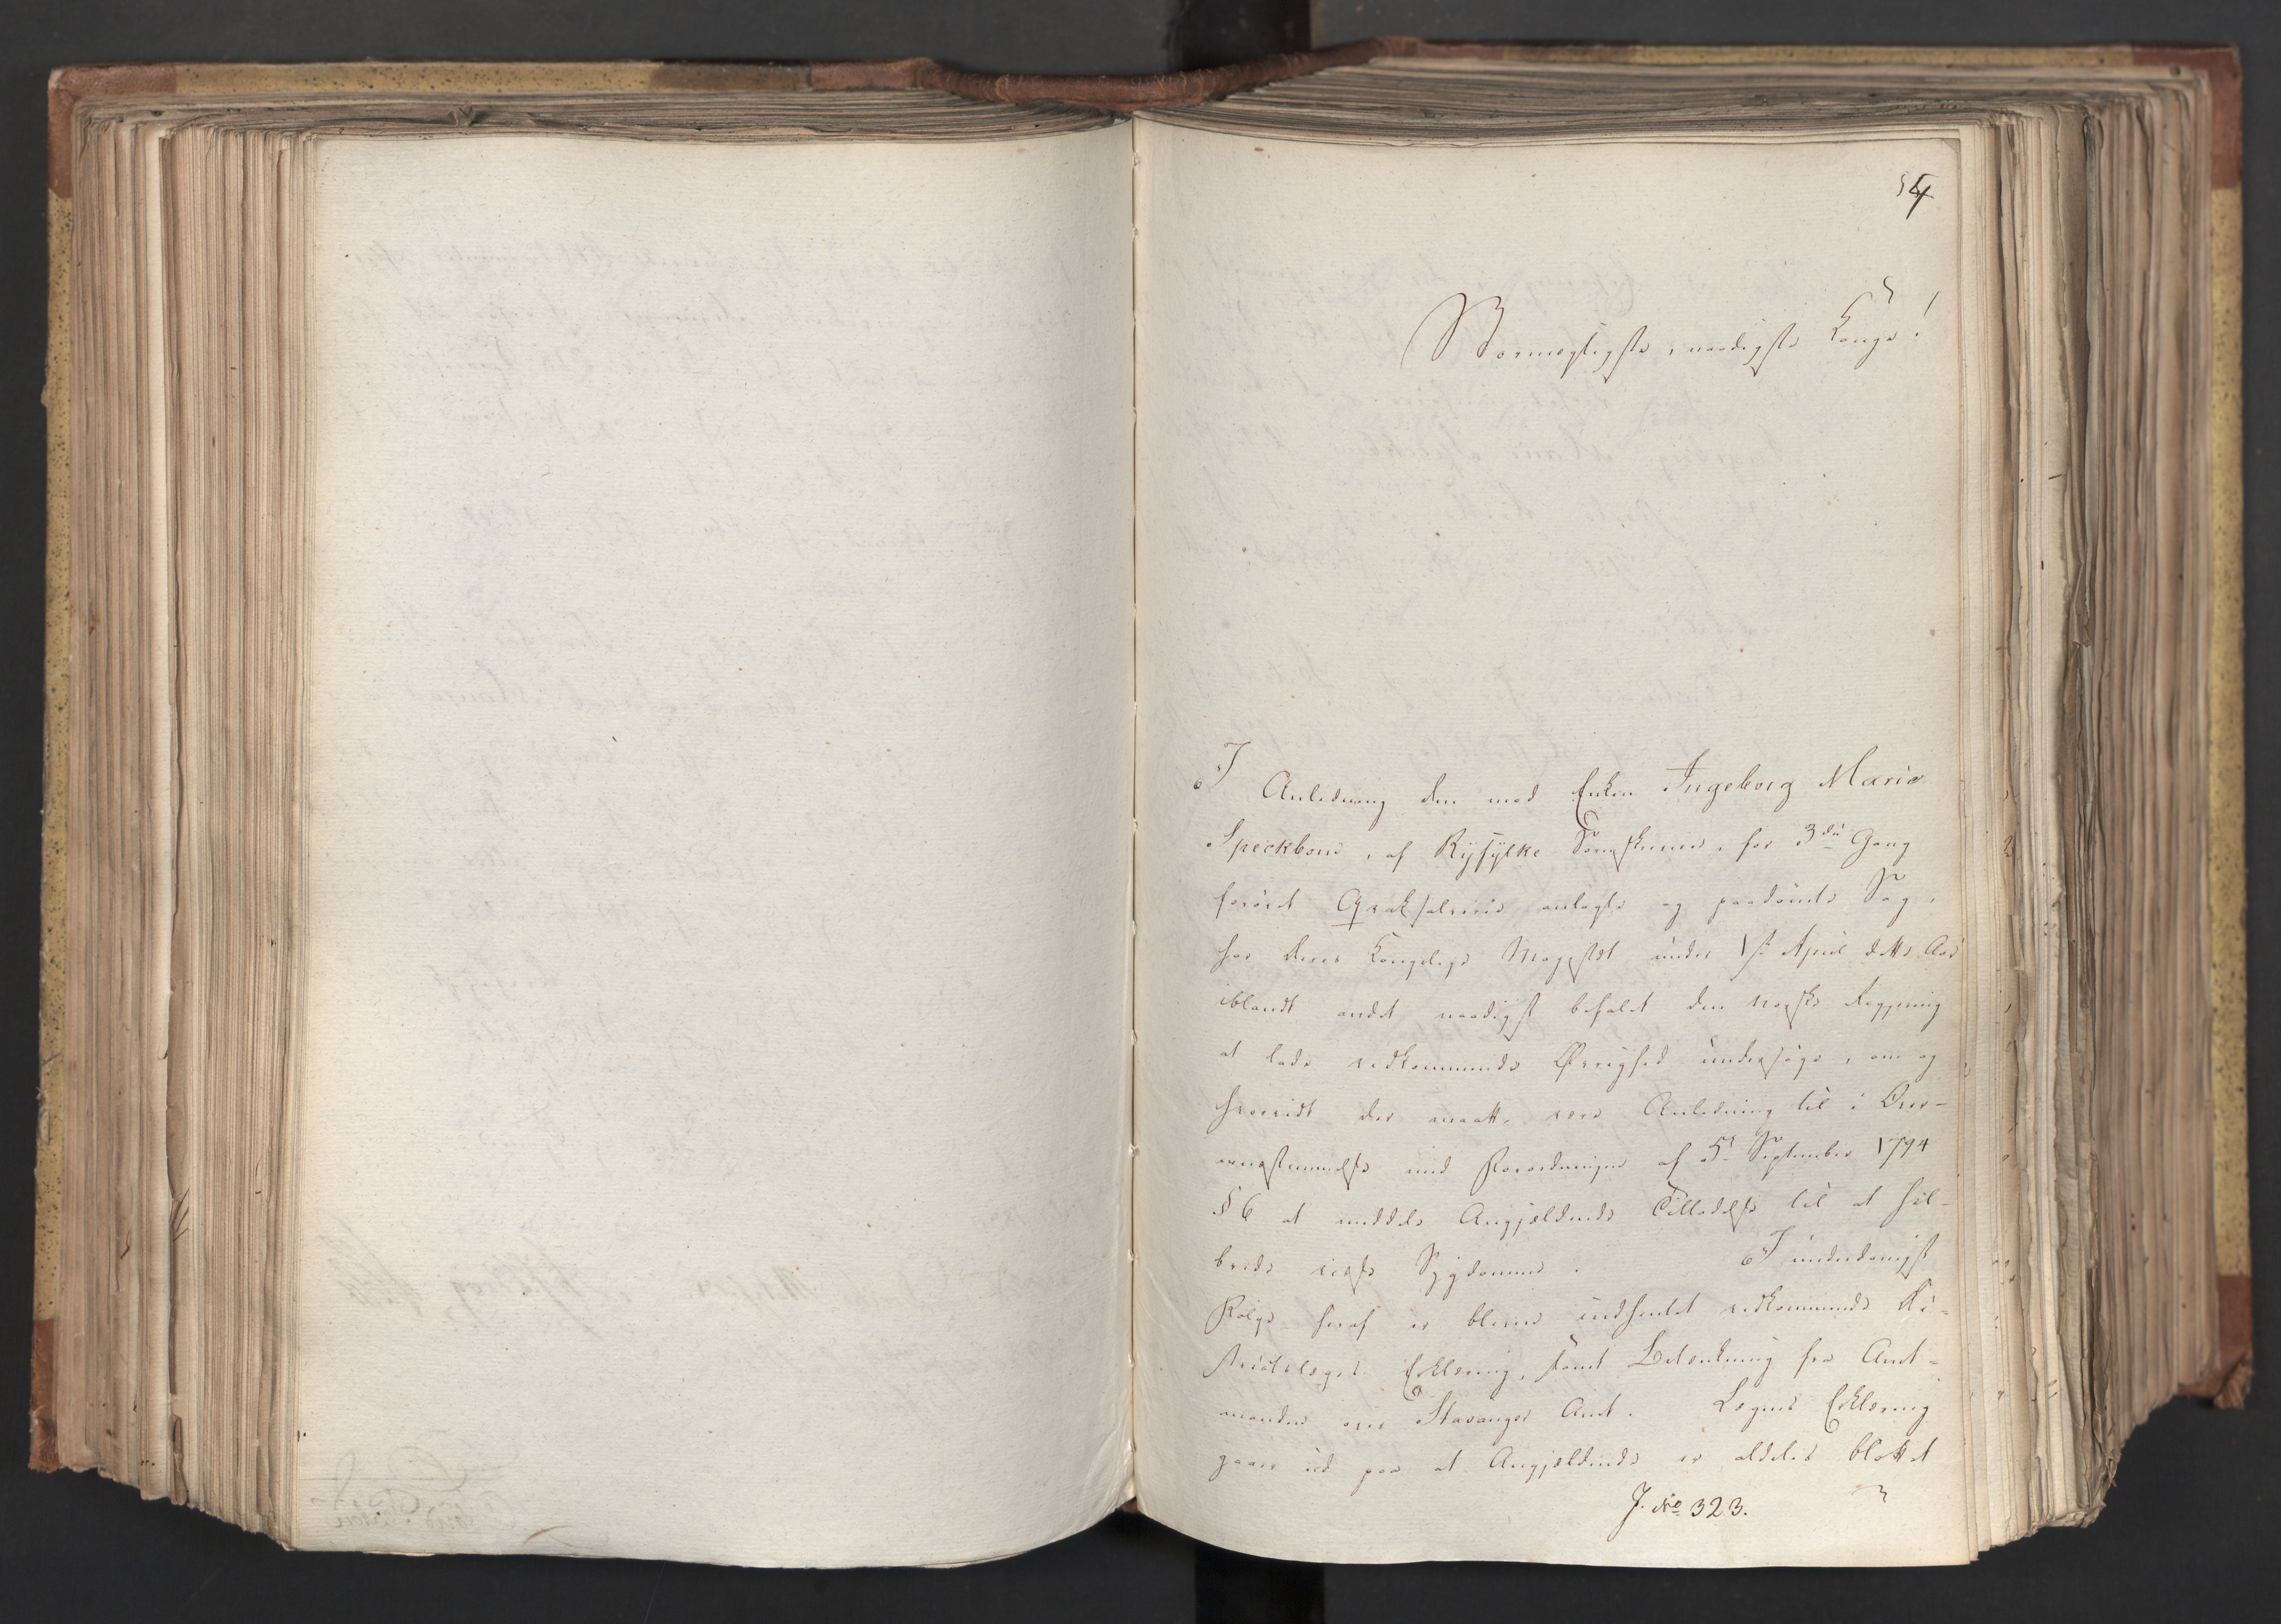 54
Stormægtigste, naadigste Konge!
I Anledning den mod Enken Ingeborg Marie
Speckbom, af Ryfylke Sorenskriveri, for 3die Gang
forövet Qvaksalverie anlagte og paadömte Sag,
har Deres Kongelige Majestæt under 1ste April dette Aar
iblandt andet naadigst befalet den norske Regjering
at lade vedkommende Øvrighed undersöge, om og
hvorvidt der maatte være Anledning til i Over-
eensstemmelse med Forordningen af 5te September 1794
§ 6 at meddele Angjældende Tilladelse til at hel-
brede visse Sygdomme. I underdanigst
Fölge heraf er bleven indhentet vedkommende Di-
strictslæges Erklæring, samt Betænkning fra Amt-
manden over Stavanger Amt. Lægens Erklæring
gaaer ud paa at Angjældende er aldeles blottet
J. No 323.